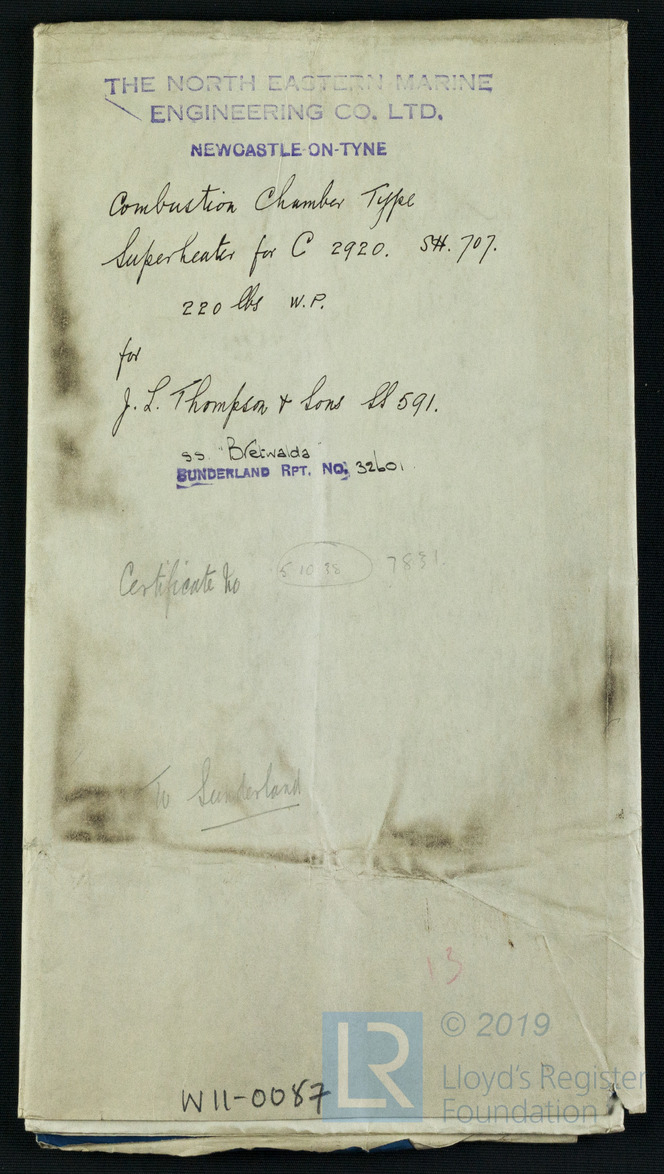 THE NORTH EASTERN MARINE
ENGINEERING CO. LTD.
NEWCASTLE-ON-TYNE
Combustion Chamber Type
Superheater for C 2920. SH. 707.
220 lbs W.P.
for
J. L. Thompson & Sons SS 591.
ss "Bretwalda"
SUNDERLAND RPT. NO. 32601.
Certificate No 5 10 38 7831.
To Sunderland
13
© 2019
LR
Lloyd's Register
Foundation
W11-0087